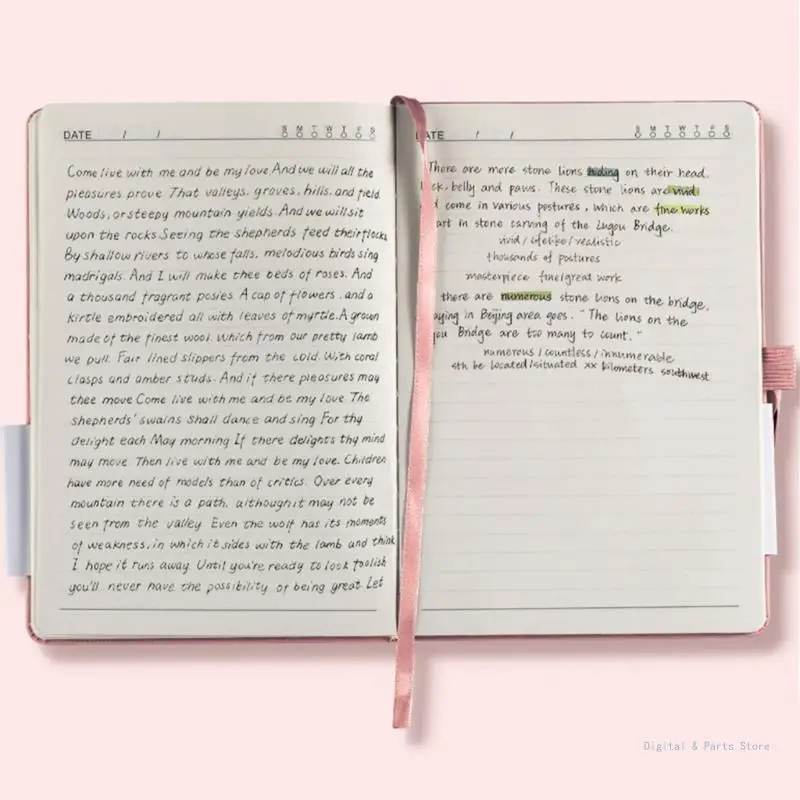 DATE / /
S M T W T F S
Come live with me and be my love And we will all the
pleasures prove That valleys, groves, hills, and field
Woods, or steepy mountain yields And we will sit
upon the rocks Seeing the shepherds feed their flocks
By shallow rivers to whose falls, melodious birds sing
madrigals. And I will make thee beds of roses. And
a thousand fragrant posies A cap of flowers, and a
kirtle embroidered all with leaves of myrtle. A gown
made of the finest wool. Which from our pretty lamb
we pull. Fair lined slippers from the cold. With coral
clasps and amber studs. And if there pleasures may
thee move Come live with me and be my love The
shepherds' swains Shall dance and sing For thy
delight each May morning If there delights thy mind
may move Then live with me and be my love. Children
have more need of models than of critics. Over every
mountain there is a path, although it may not be
seen from the valley. Even the wolf has its moments
of weakness, in which it sides with the lamb and think
I hope it runs away. Until you're ready to look foolish
you'll never have the possibility of being great. Let
ATE / /
S M T W T F S
There are more stone lions hiding on their head,
ck, belly and paws. These stone lions are vivid
d come in various postures, which are fine works
art in stone carving of the Lugou Bridge.
vivid / lifelike / realistic
thousands of postures
masterpiece fine/great work
there are numerous stone lions on the bridge,
aying in Beijing area goes. "The lions on the
gou Bridge are too many to count."
numerous / countless / innumerable
sth be located/situated xx kilometers southwest
Digital & Parts Store